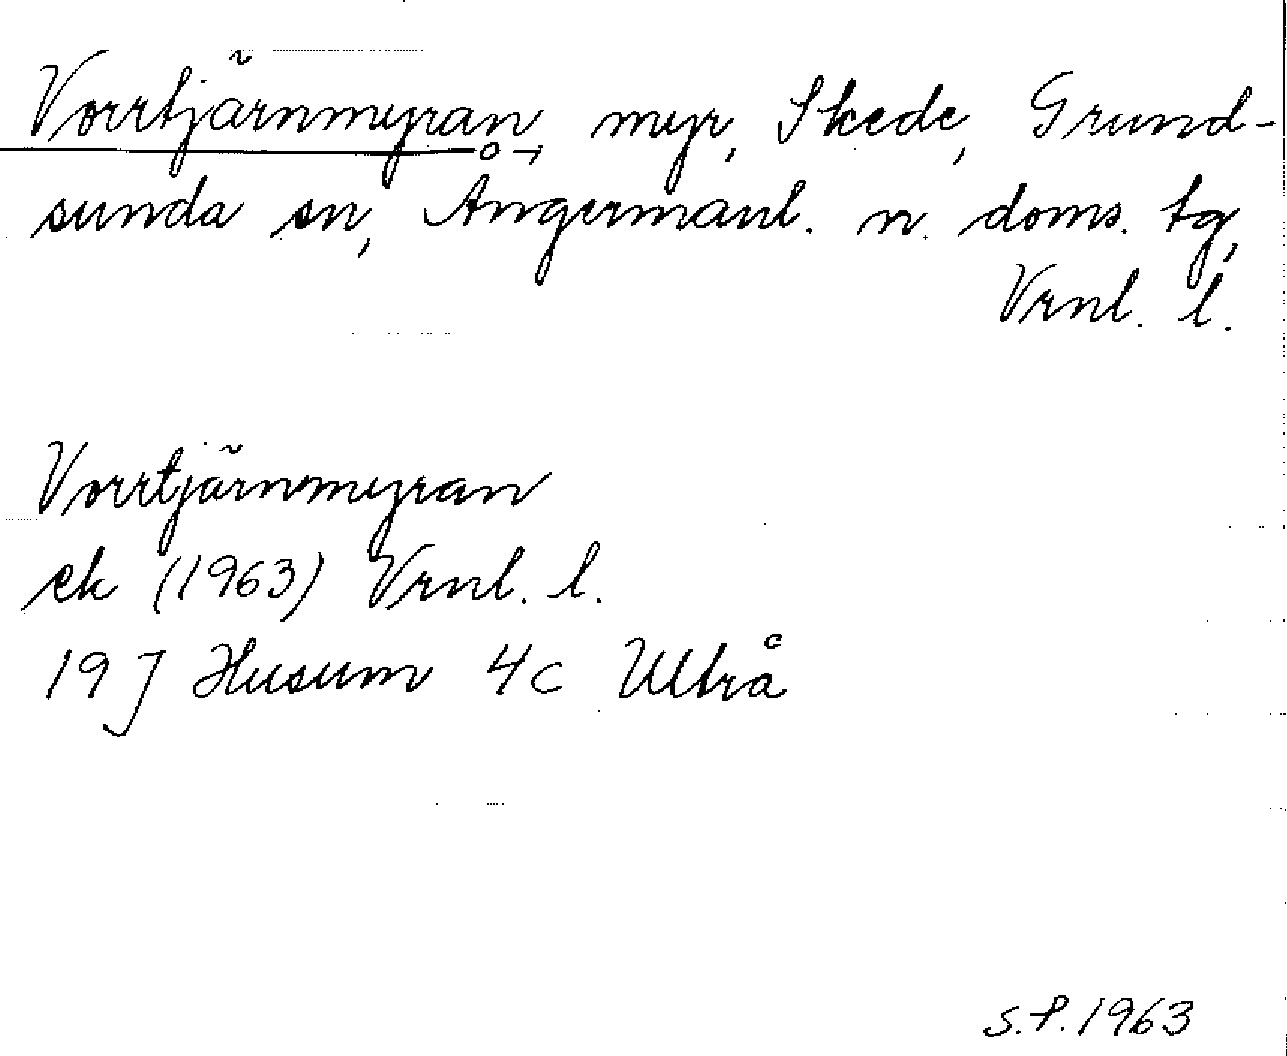 Vorrtjärnmyran, myr, Skede, Grund-
sunda sn, Ångermanl. n. doms. tg,
Vrnl. l.
Vorrtjärnmyran
ek (1963) Vrnl. l.
19 J Husum 4c Ultrå
S.P. 1963